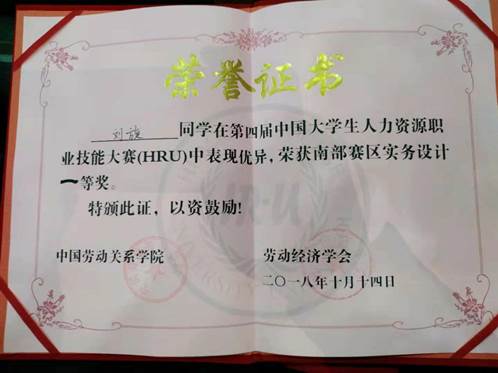 荣誉证书
刘旗 同学在第四届中国大学生人力资源职
业技能大赛(HRU)中表现优异，荣获南部赛区实务设计
一等奖。
特颁此证，以资鼓励!
中国劳动关系学院 劳动经济学会
二〇一八年十月十四日